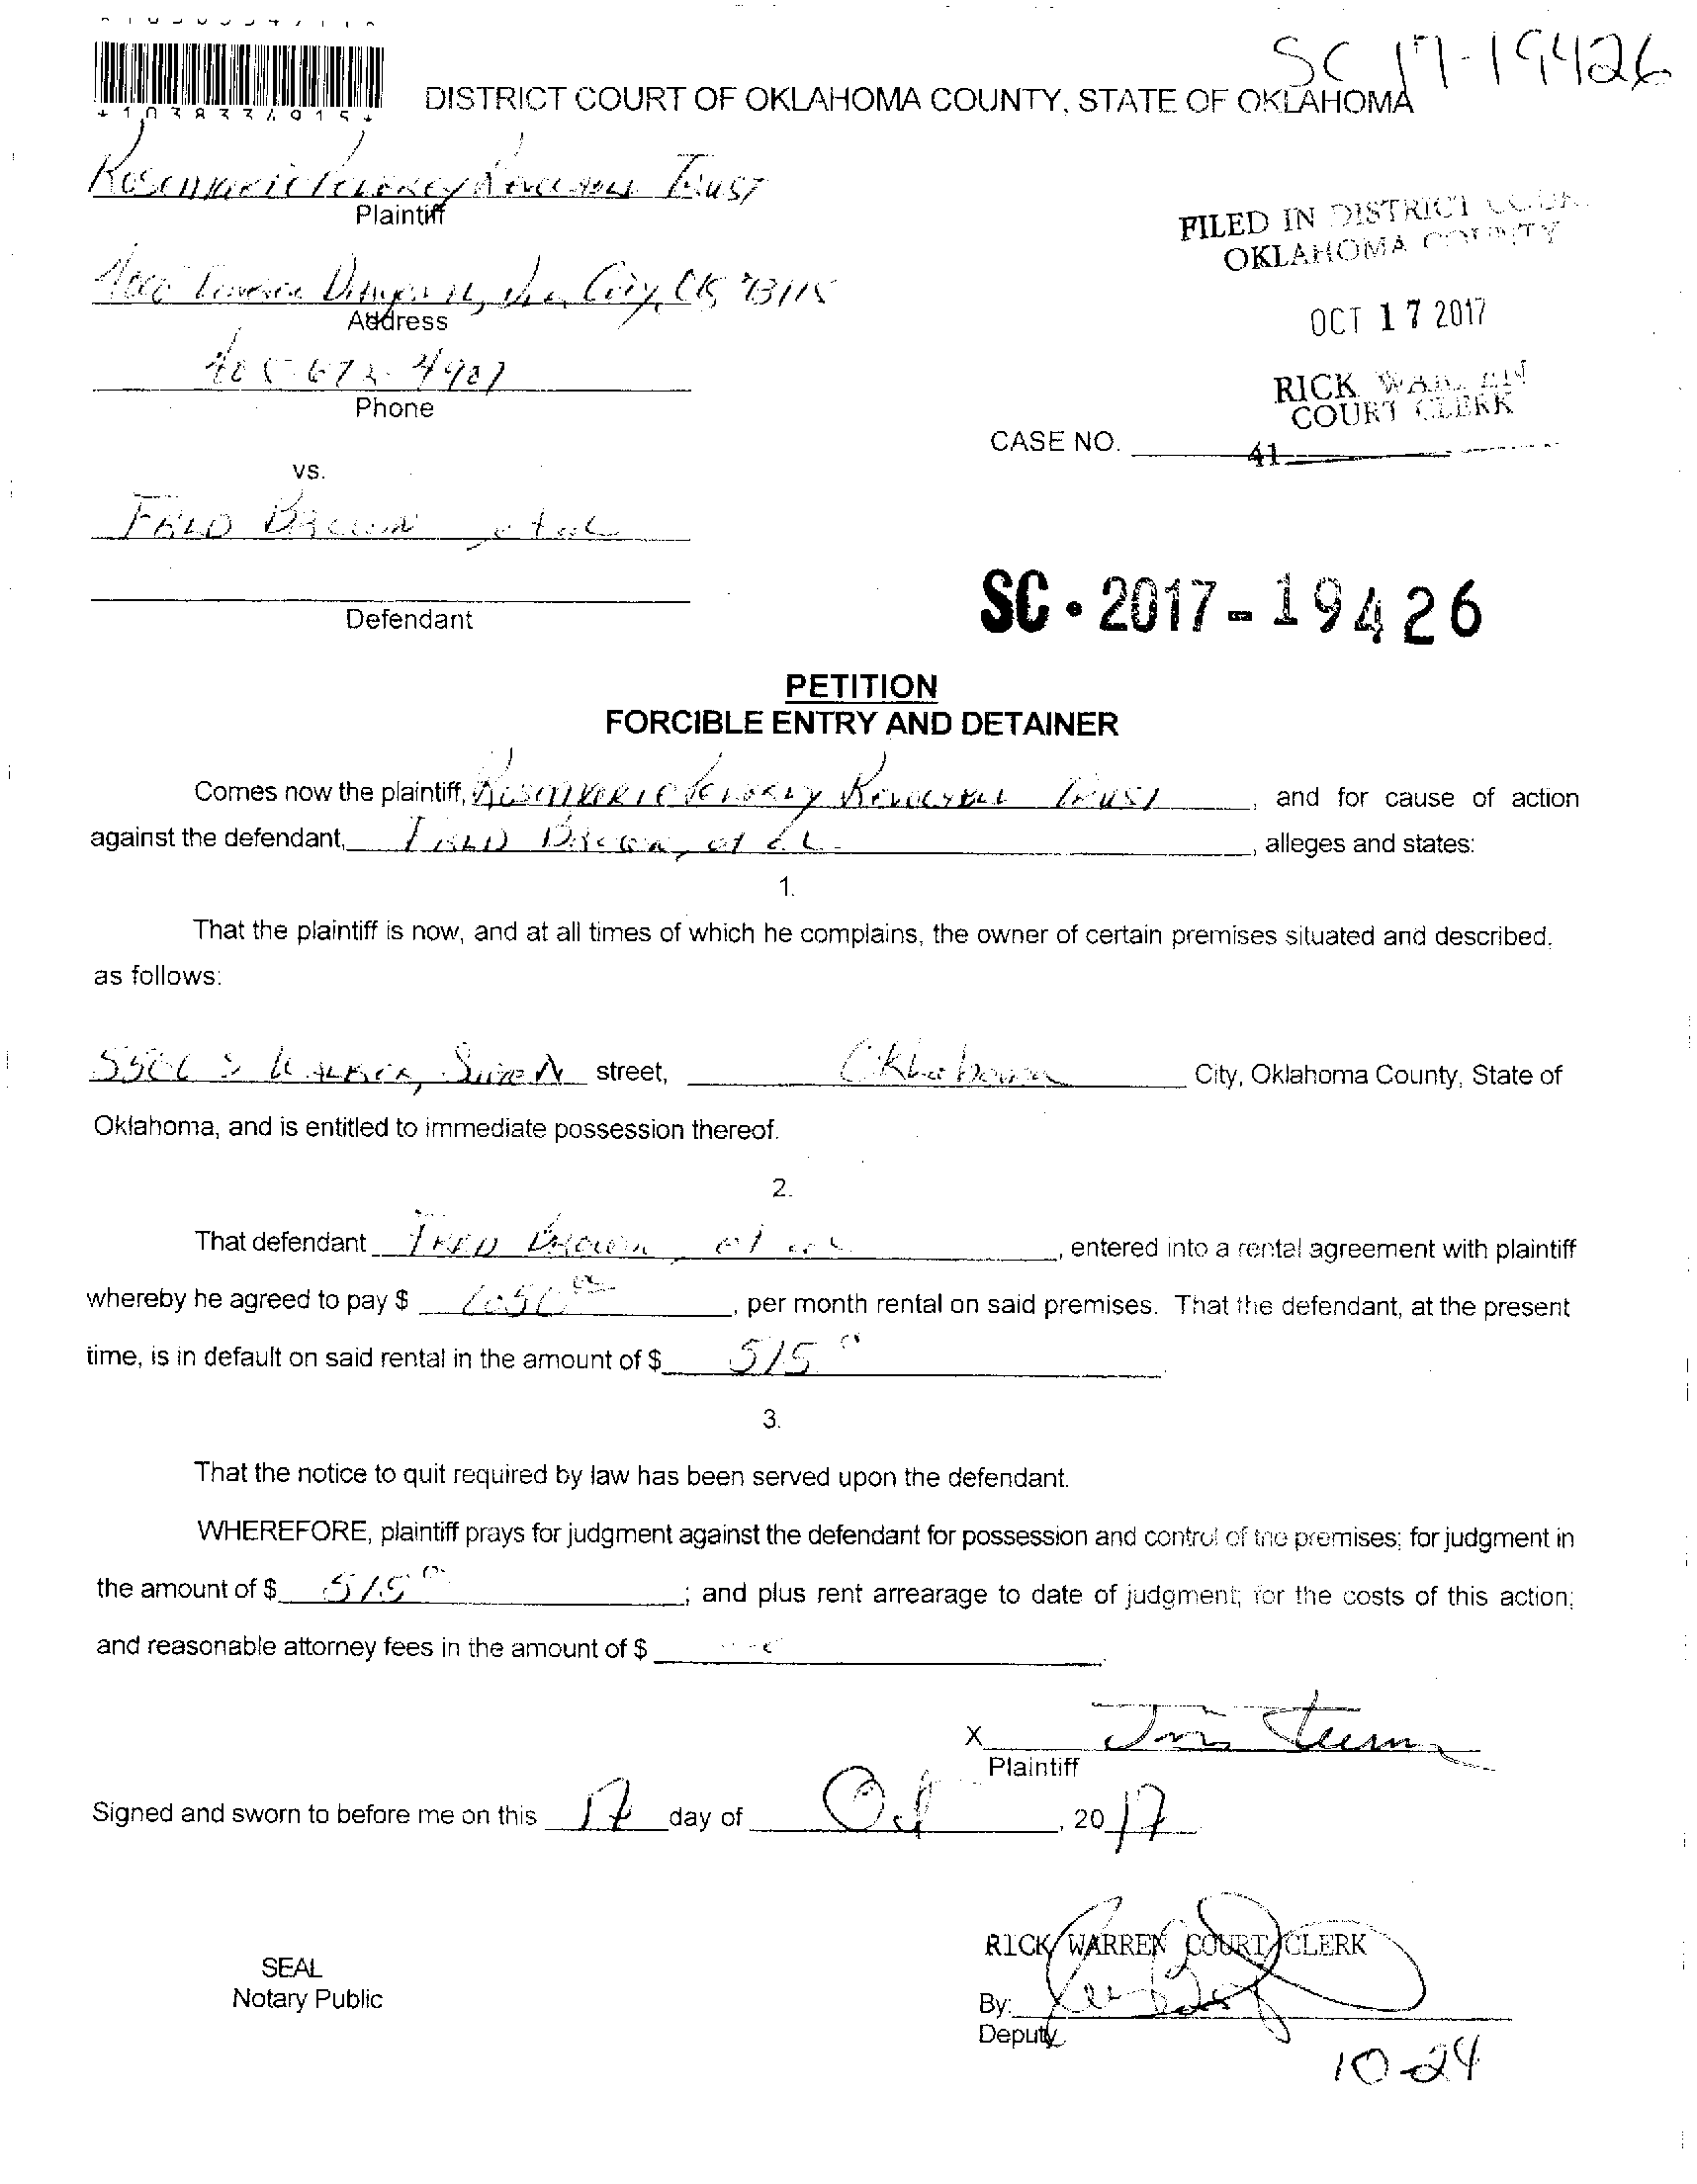 SC 17-19426
DISTRICT COURT OF OKLAHOMA COUNTY, STATE OF OKLAHOMA
Trust
Plaintiff
City, OK 73115
Address
405-672-4907
Phone
FILED IN DISTRICT
OKLAHOMA COUNTY
OCT 17 2017
RICK WARREN
COURT CLERK
CASE NO.
41
vs.
FRED BROWN, et al
Defendant
SC - 2017 - 19426
PETITION
FORCIBLE ENTRY AND DETAINER
Comes now the plaintiff, Trust, and for cause of action
against the defendant, FRED Brown, et al, alleges and states:
1.
That the plaintiff is now, and at all times of which he complains, the owner of certain premises situated and described,
as follows:
S WALKER, street, Oklahoma City, Oklahoma County, State of
Oklahoma, and is entitled to immediate possession thereof.
2.
That defendant FRED Brown, et al, entered into a rental agreement with plaintiff
whereby he agreed to pay $ , per month rental on said premises. That the defendant, at the present
time, is in default on said rental in the amount of $ 515
3.
That the notice to quit required by law has been served upon the defendant.
WHEREFORE, plaintiff prays for judgment against the defendant for possession and control of the premises; for judgment in
the amount of $ 515 ; and plus rent arrearage to date of judgment; for the costs of this action;
and reasonable attorney fees in the amount of $
X
Plaintiff
Signed and sworn to before me on this 17 day of Oct, 20 17
RICK WARREN COURT CLERK
SEAL
Notary Public
By:
Deputy
10-24